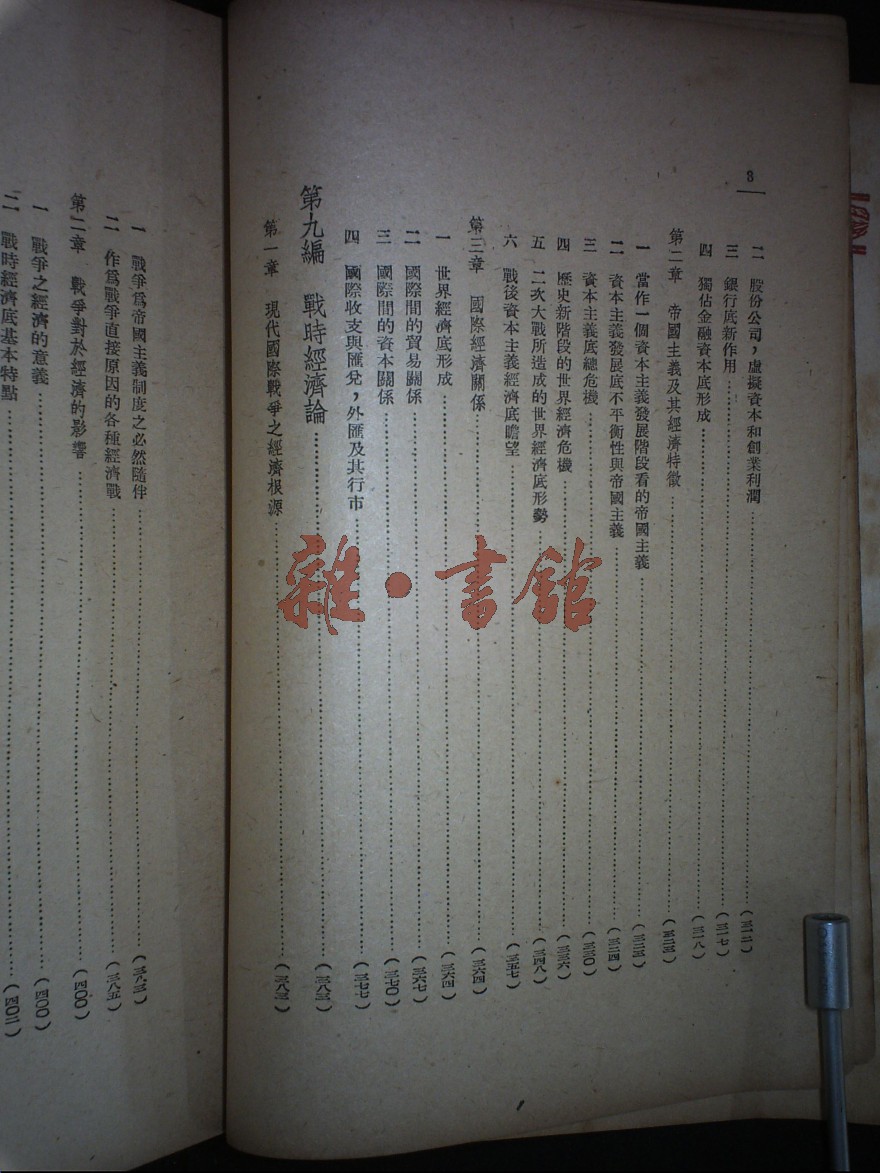 8
二 股份公司，虛擬資本和創業利潤……(三一二)
三 銀行底新作用……(三一七)
四 獨佔金融資本底形成……(三一八)
第二章 帝國主義及其經濟特徵……(三二三)
一 當作一個資本主義發展階段看的帝國主義……(三二三)
二 資本主義發展底不平衡性與帝國主義……(三二四)
三 資本主義底總危機……(三三〇)
四 歷史新階段的世界經濟危機……(三三六)
五 二次大戰所造成的世界經濟底形勢……(三四八)
六 戰後資本主義經濟底瞻望……(三五七)
第三章 國際經濟關係……(三六四)
一 世界經濟底形成……(三六四)
二 國際間的貿易關係……(三六七)
三 國際間的資本關係……(三七〇)
四 國際收支與匯兌，外匯及其行市……(三七七)
第九編 戰時經濟論……(三八三)
第一章 現代國際戰爭之經濟根源……(三八三)
一 戰爭爲帝國主義制度之必然隨伴……(三八三)
二 作爲戰爭直接原因的各種經濟戰……(三八五)
第二章 戰爭對於經濟的影響……(四〇〇)
一 戰爭之經濟的意義……(四〇〇)
二 戰時經濟底基本特點……(四〇二)
雜·書館